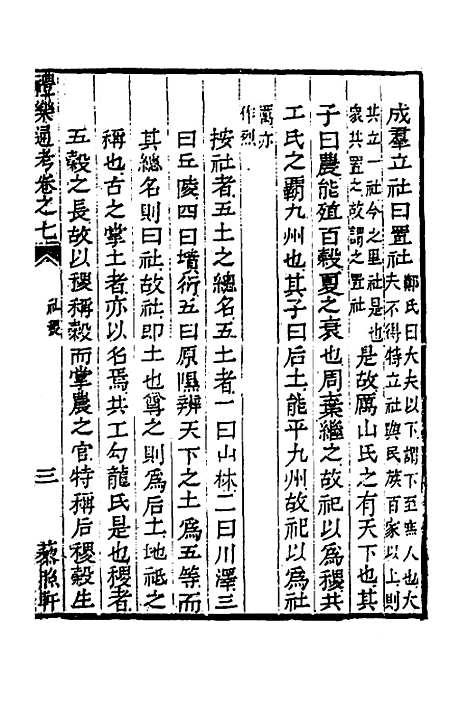 成羣立社曰置社
鄭氏曰大夫以下謂下至庶人也大
夫不得特立社與民族百家以上則
共立一社今之里社是也
衆共置之故謂之置社
是故厲山氏之有天下也其
子曰農能殖百穀夏之衰也周棄繼之故祀以為稷共
工氏之霸九州也其子曰后土能平九州故祀以為社
厲亦
作烈
按社者五土之總名五土者一曰山林二曰川澤三
曰丘陵四曰墳衍五曰原隰辨天下之土為五等而
其總名則曰社故社即土也尊之則為后土地祗之
稱也古之掌土者亦以名焉共工勾龍氏是也稷者
五穀之長故以稷稱穀而掌農之官特稱后稷穀生
禮樂通考卷之七
社稷
三
軒